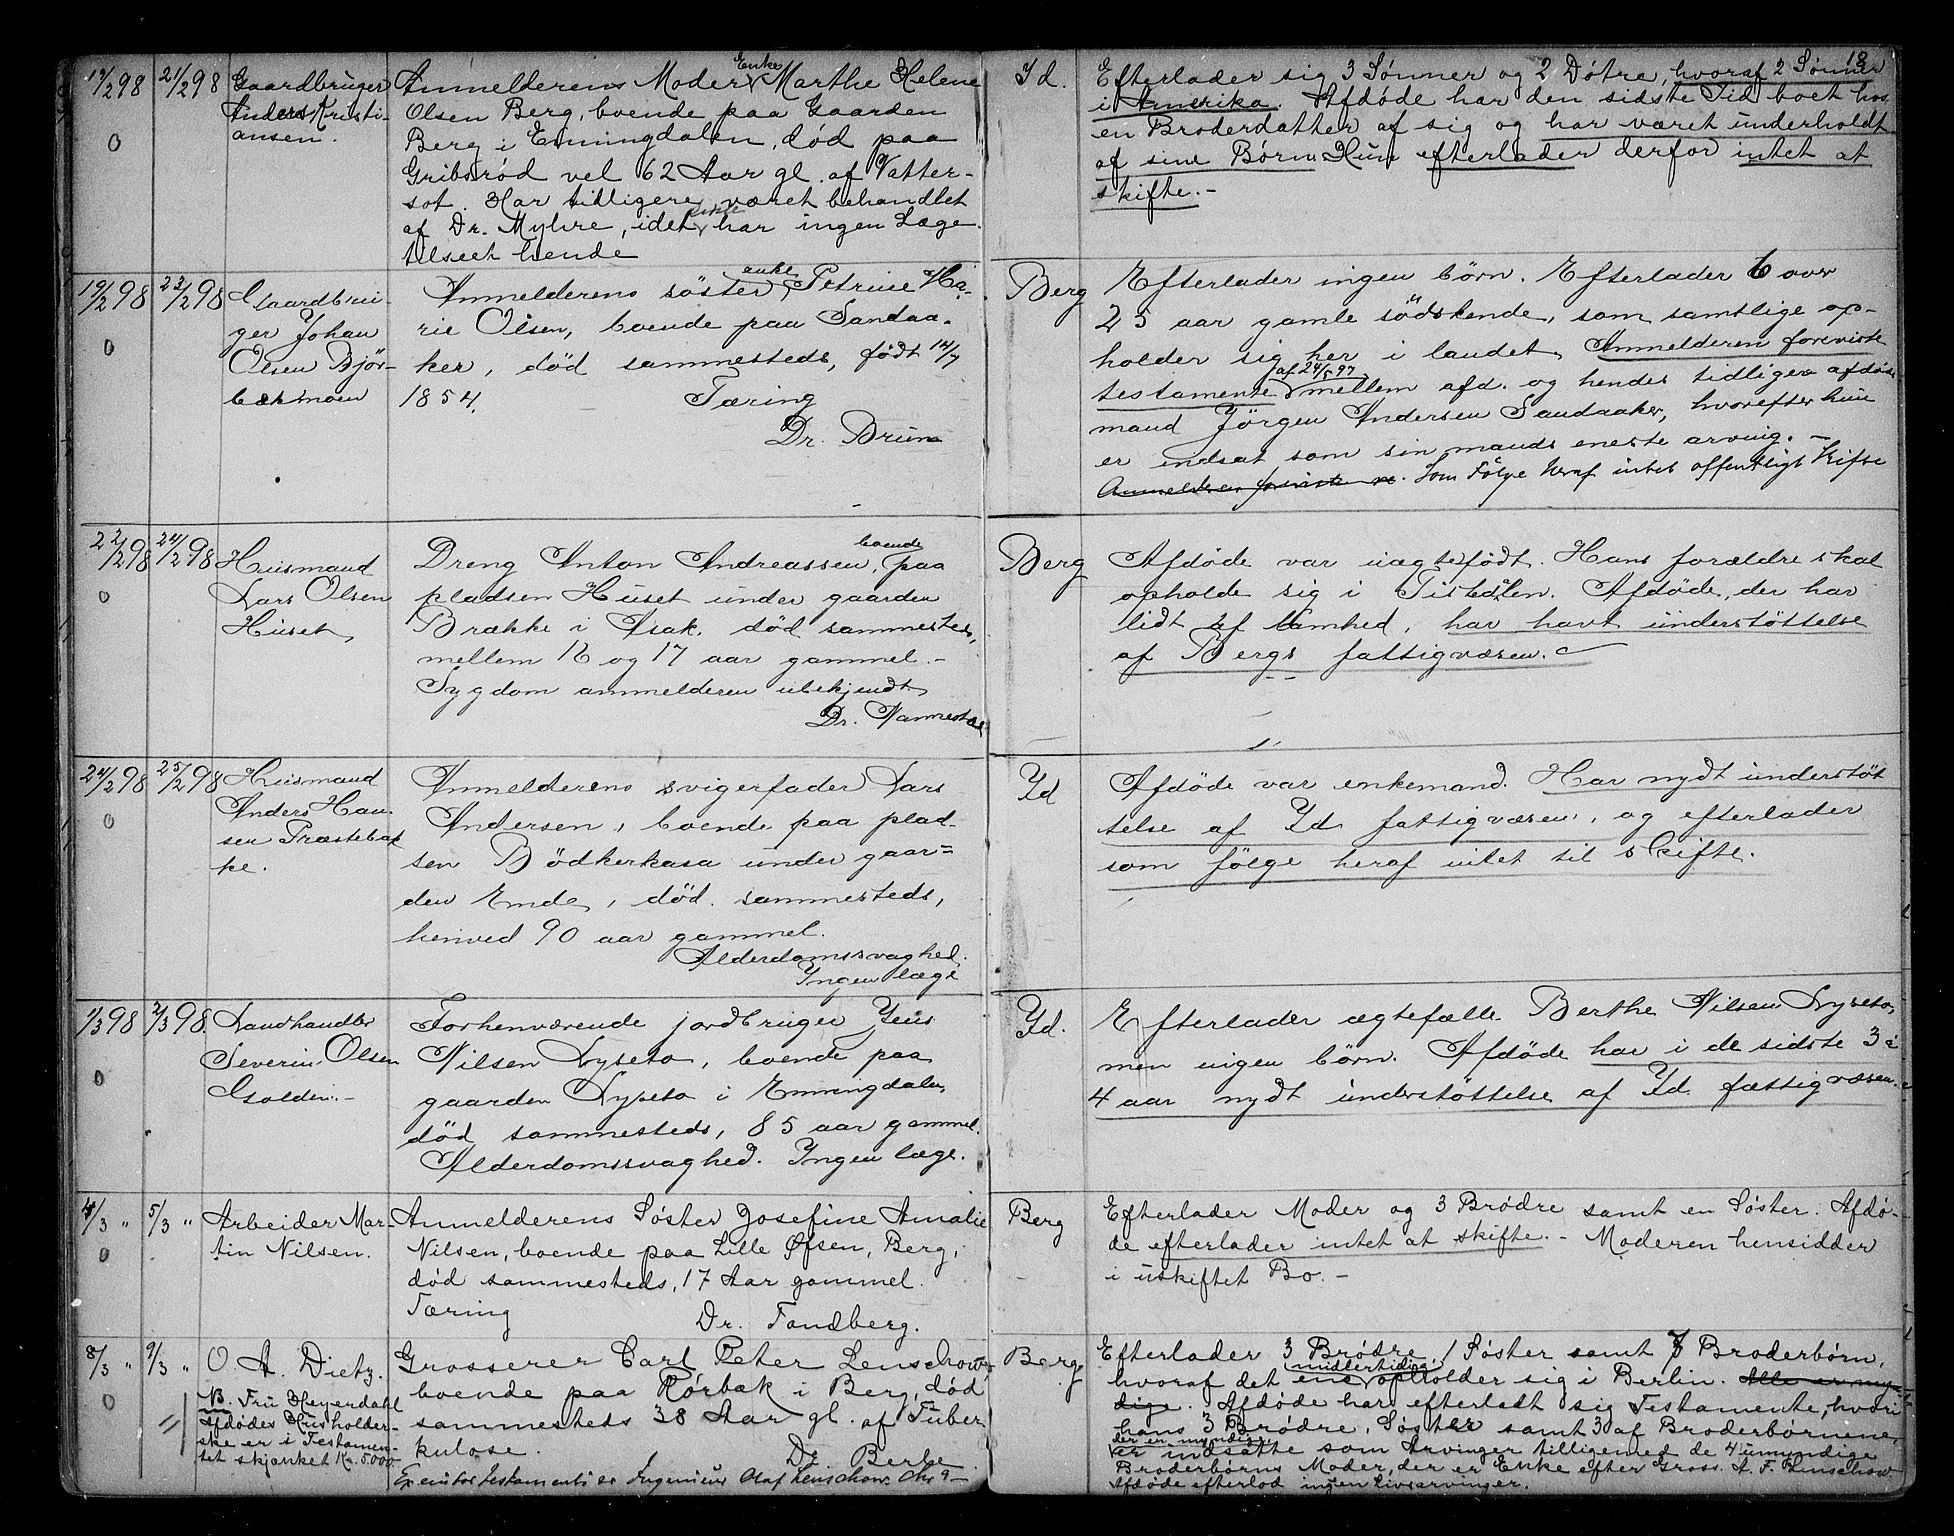 18
19/2 98
21/2 98
0
Gaardbruger
Anders Kristi-
ansen.
Enke
Anmelderens Moder Marthe Helene
Olsen Berg, boende paa Gaarden
Berg i Enningdalen, død paa
Gribsrød vel 62 Aar gl. af Vatter-
sot. Har tidligere været behandlet
af Dr. Myhre, idet har ingen Læge
tilseet hende
Id.
Efterlader sig 3 Sønner og 2 Døtre, hvoraf 2 Sønner
i Amerika. Afdøde har den sidste Tid boet hos
en Broderdatter af sig og har været underholdt
af sine Børn. Hun efterlader derfor intet at
skifte.-
19/2 98
23/2 98
0
Gaardbru-
ger Johan
Olsen Bjør-
bækmoen
enke
Anmelderens søster, Petrine Ma-
rie Olsen, boende paa Sandaa-
ker, død sammesteds, født 14/7
1854. Tæring
Dr. Brun
Berg
Efterlader ingen børn. Efterlader 6 over
25 aar gamle sødskende, som samtlige op-
holder sig her i landet. Anmelderen foreviste
af 24/5 97
testamente mellem afd. og hendes tidligere afdøde
mand Jørgen Andersen Sandaaker, hvorefter hun
er indsat som sin mands eneste arving. -
Anmelderen foreviste. Som Følge heraf intet offentligt Skifte
22/2 98
24/2 98
0
Husmand
Lars Olsen
Huset,
boende
Dreng Anton Andreassen, paa
pladsen Huset under gaarden
Brække i Asak, død sammesteds,
mellem 16 og 17 aar gammel.-
Sygdom anmelderen ubekjendt
Dr. Nannestad
Berg
Afdøde var uægtefødt. Hans forældre skal
opholde sig i Tistedalen. Afdøde, der har
lidt af lamhed, har havt understøttelse
af Bergs fattigvæsen.
24/2 98
25/2 98
0
Husmand
Anders Han-
sen Præstebak-
ke.
Anmelderens svigerfader Lars
Andersen, boende paa plad-
sen Bødkerkasa under gaar-
den Ende, død sammesteds,
henved 90 aar gammel.
Alderdomssvaghed.
Ingen læge
Id
Afdøde var enkemand. Har nydt understøt
telse af Id fattigvæsen, og efterlader
som følge heraf intet til skifte.
1/3 98
2/3 98.
0
Landhandler
Severin Olsen
Holden.-
Forhenværende jordbruger Jens
Nilsen Lyseto, boende paa
gaarden Lyseto i Enningdalen,
død sammesteds, 85 aar gammel.
Alderdomssvaghed. Ingen læge.
Id.
Efterlader ægtefælle Berthe Nilsen Lyseto,
men ingen børn. Afdøde har i de sidste 3 à
4 aar nydt understøttelse af Id fattigvæsen.
4/3 "
5/3 "
0
Arbeider Mar-
tin Nilsen.
Anmelderens Søster Josefine Amalie
Nilsen, boende paa Lille Øfsen, Berg,
død sammesteds, 17 Aar gammel.
Tæring
Dr. Tandberg.
Berg
Efterlader Moder og 3 Brødre samt en Søster. Afdø-
de efterlader intet at skifte.- Moderen hensidder
i uskiftet Bo.-
8/3 "
9/3 "
0
O. A. Dietz.
NB. Fru Heyerdahl
Afdødes Husholder-
ske er i Testamen-
tet skjænket Kr. 5000
Grosserer Carl Peter Lenschow,
boende paa Rørbæk i Berg, død
sammesteds 38 Aar gl. af Tuber
kulose.
Dr. Berle
Executor testamenti er Ingeniør Olaf Lenschow. Chr a-
Berg
Efterlader 3 Brødre, 1 Søster samt 7 Broderbørn,
midlertidig
hvoraf det ene opholder sig i Berlin. Alle er myn
dige. Afdøde har efterladt sig Testamente, hvori
hans 3 Brødre, Søster samt 3 af Broderbørnene,
der er myndige,
er indsatte som Arvinger tilligemed de 4 umyndige
Broderbørns Moder, der er Enke efter Gross. A. F. Lenschow
Afdøde efterlod ingen Livsarvinger.